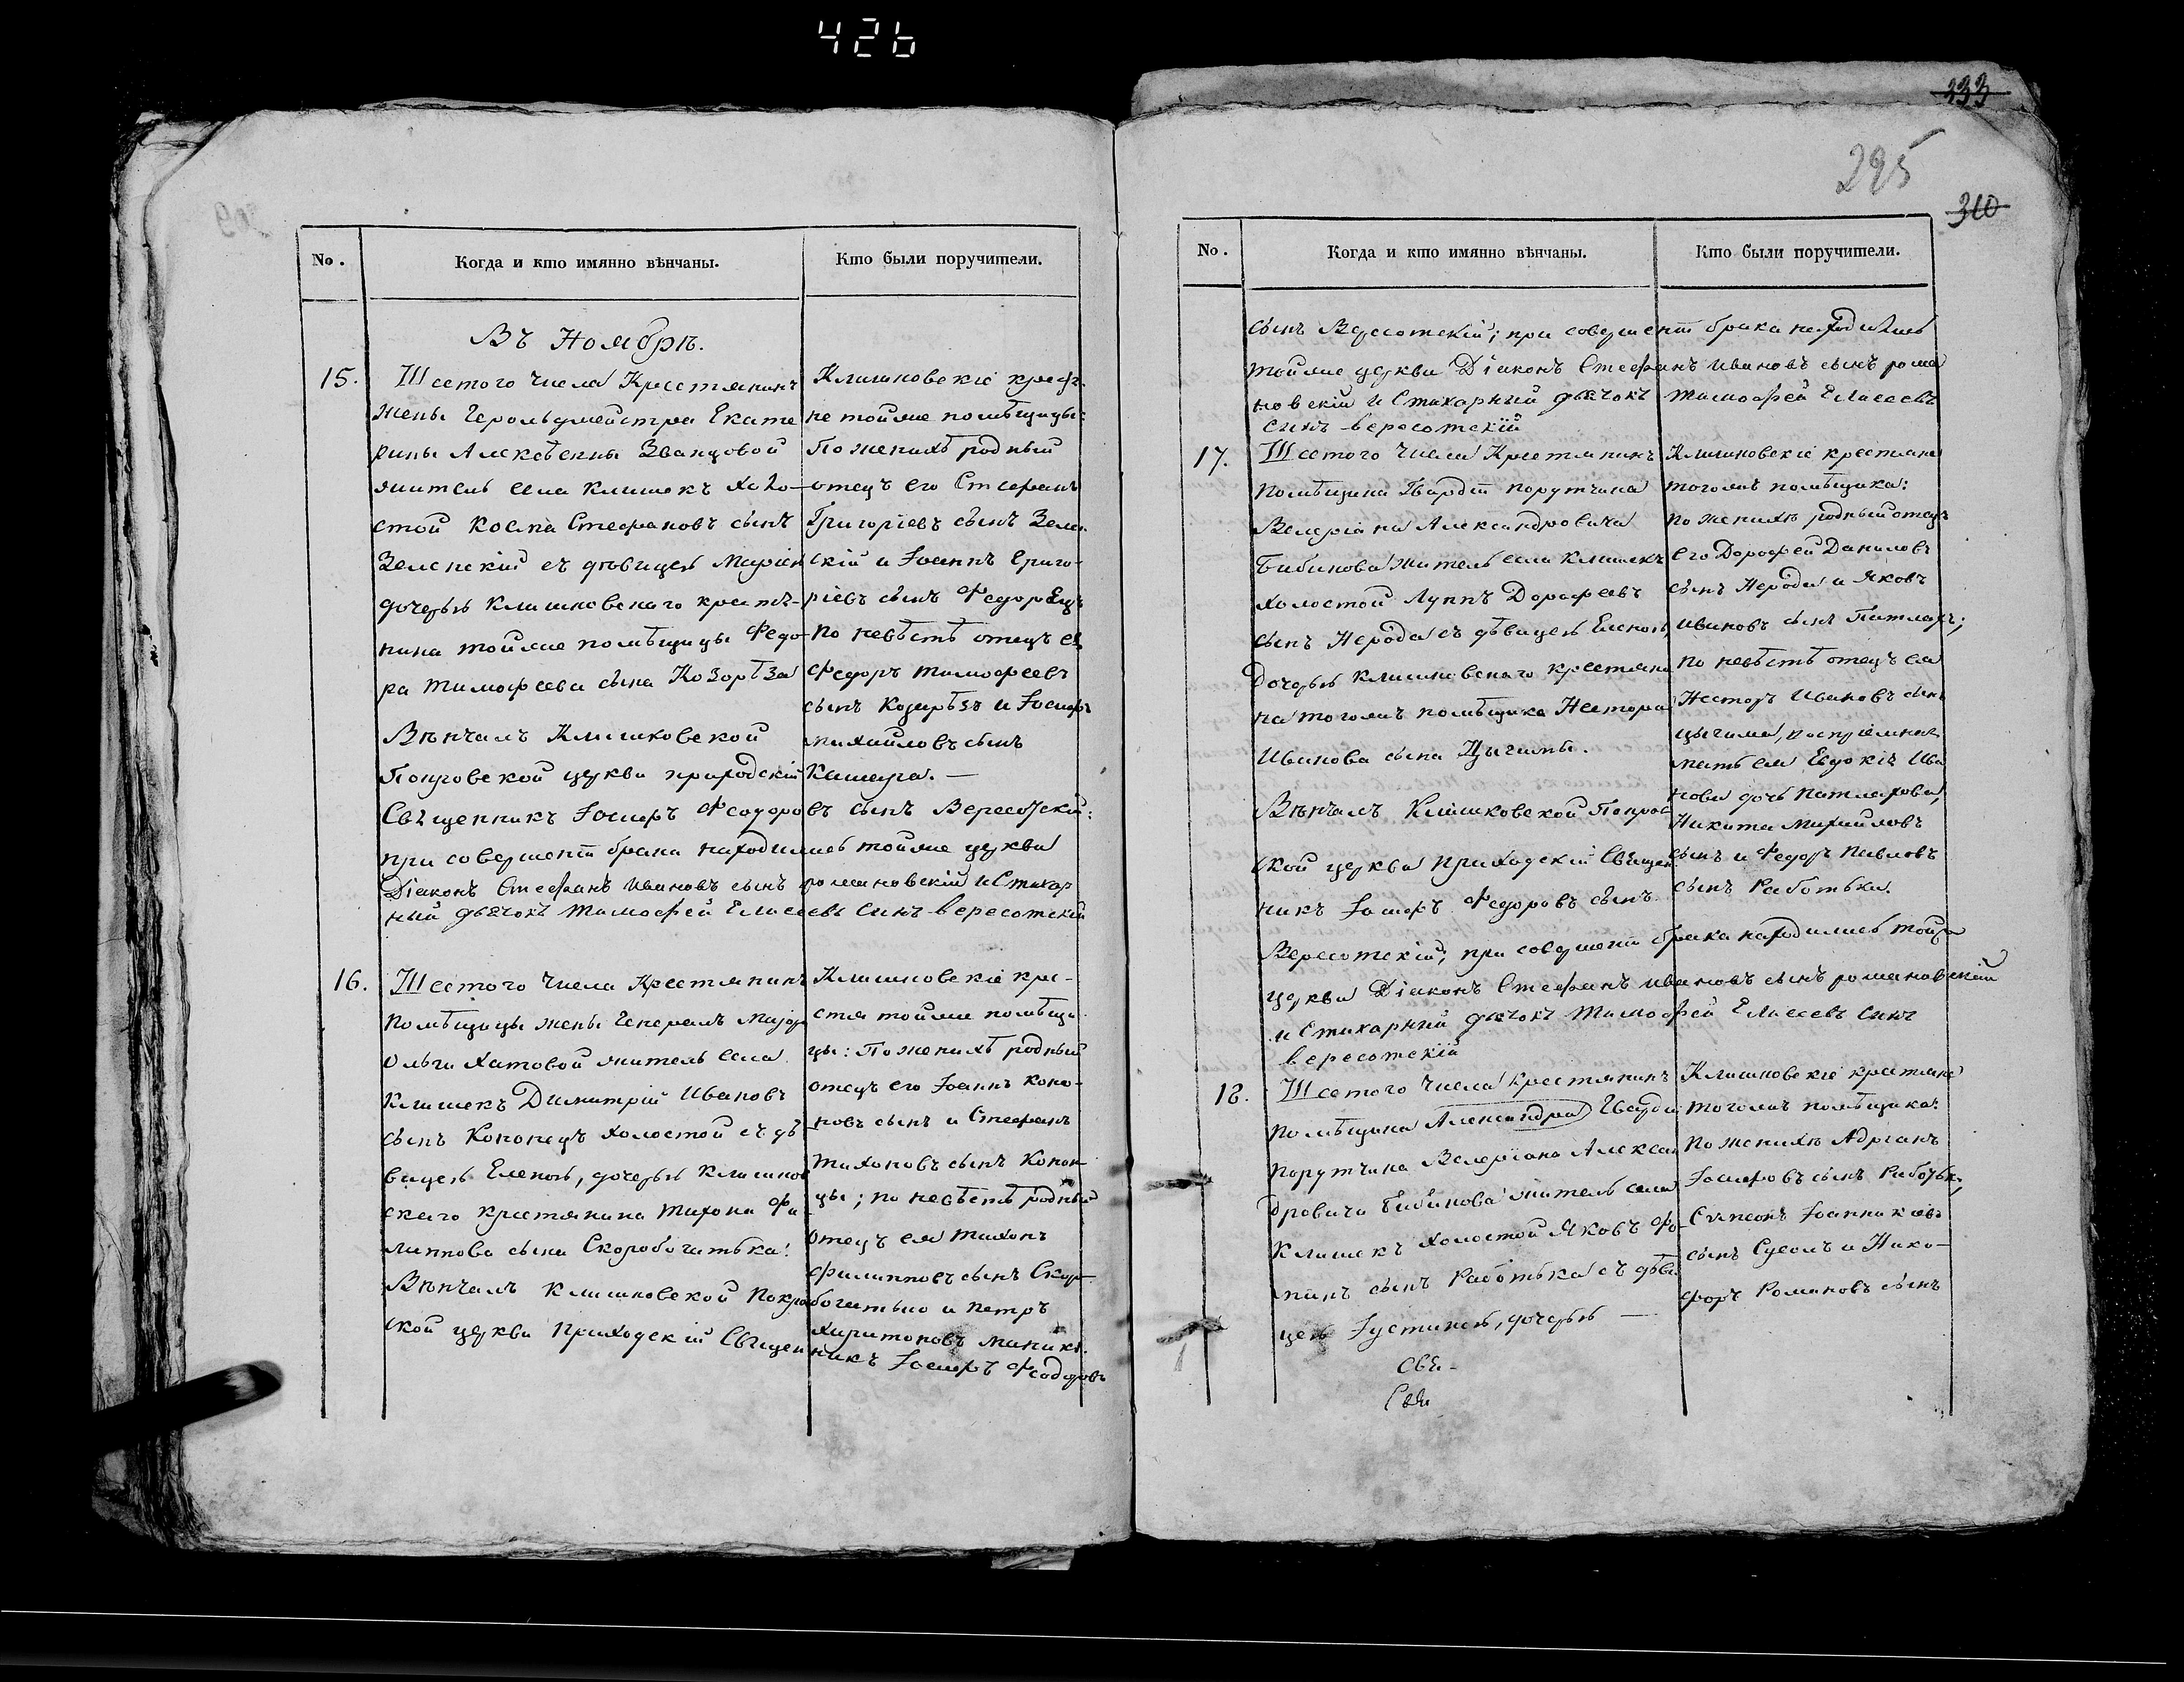 426
No.
Когда и кто имянно вѣнчаны.
Кто были поручители.
Въ Ноябрѣ.
15.
Шестого числа Крестянинъ
жены Герольдмейстра Екате
рины Алексѣевны Званцовой
житель села Клишекъ Холо-
стой Косма Стефановъ сынъ
Зеленскій съ дѣвицею Маріею
дочерью Клишковскаго крестя-
нина тойже помѣщицы Федо-
ра Тимофеева сына Козорѣза
Вѣнчалъ Клишковской
Покровской церкви приходскій
Священникъ Іосифъ Феодоровъ сынъ Вересотскій:
при совершеніи брака находились тойже церкви
Діаконъ Стефанъ Ивановъ сынъ романовскій и Стихар
ный дьячокъ Тимофей Елисеевъ синъ вересотскій
Клишковскіе крест-
не тойже помѣщицы:
По женихѣ родный
отецъ его Стефанъ
Григоріевъ сынъ Зелен
скій и Іоаннъ Григо-
ріевъ сынъ Федорецъ
по невѣстѣ отецъ ея
Федоръ Тимофеевъ
сынъ Козирѣзъ и Іосифъ
михайловъ сынъ
Кашура. —
16.
Шестого числа Крестянинъ
Помѣщицы жены Генералъ Маіора
Ольги Хатовой житель села
Клишекъ Димитрій Ивановъ
сынъ Кононецъ холостой съ дѣ
вицею Еленою, дочерью Клишков
скаго крестянина Тихона Фи
липпова сына Скоробогатька.
Вѣнчалъ Клишковской Покров
ской церкви Приходскій Священникъ Іосифъ Феодоровъ
Клишковскіе кре-
стя тойже помѣщи
цы: По женихѣ родный
отецъ его Іоаннъ Коно-
новъ сынъ и Стефанъ
Тихоновъ сынъ Конон-
цы; по невѣстѣ родный
отецъ ея Тихонъ
Филипповъ сынъ Скор-
богатько и петръ
Харитоновъ
233
295
310
No.
Когда и кто имянно вѣнчаны.
Кто были поручители.
сынъ Вересотскій; при совершеніи брака находились
тойже церкви Діаконъ Стефанъ Ивановъ сынъ рома
новскій и Стихарный дьячокъ Тимофей Елисеевъ
синъ вересотскій
17.
Шестого числа Крестянинъ
Помѣщика Гвардіи порутчика
Велеріана Александровича
Бибикова житель села Клишекъ
холостой Луппъ Дорофеевъ
сынъ Нерода съ дѣвицею Еленою,
Дочерью Клишковскаго крестяни
на тогожъ помѣщика Нестора
Иванова сына Цыгимы.
Вѣнчалъ Клишковской Покров
ской церкви приходскій Священ
никъ Іосифъ Федоровъ сынъ
Вересотскій; при совершеніи брака находились тойже
церкви Діаконъ Стефанъ Ивановъ сынъ романовскій
и Стихарный дьячокъ Тимофей Елисеевъ синъ
вересотскій
Клишковскіе крестяне
тогожъ помѣщика:
по женихѣ родный отецъ
его Дорофей Даниловъ
сынъ Нерода и Яковъ
Ивановъ сынъ Патлахъ;
по невѣстѣ отецъ ея
Несторъ Ивановъ сынъ
цыгима, воспріемная
мать ея Евдокія Ива
нова дочь Патлахова,
Никита Михайловъ
сынъ и Федоръ Павловъ
сынъ Работька.
18.
Шестого числа крестянинъ
Помѣщика Александра Гвардіи
Порутчика Велеріана Алексан
дровича Бибикова житель села
Клишекъ холостой Яковъ Фо-
пинъ сынъ Работька съ дѣви
цею Іустиною, дочерью —
Свя-
Свя
Клишковскіе крестяне
тогожъ помѣщика:
По женихѣ Адріанъ
Іосифовъ сынъ Работька,
Симеонъ Іоанникіевъ
сынъ Сусолъ и Ники-
форъ Романовъ сынъ